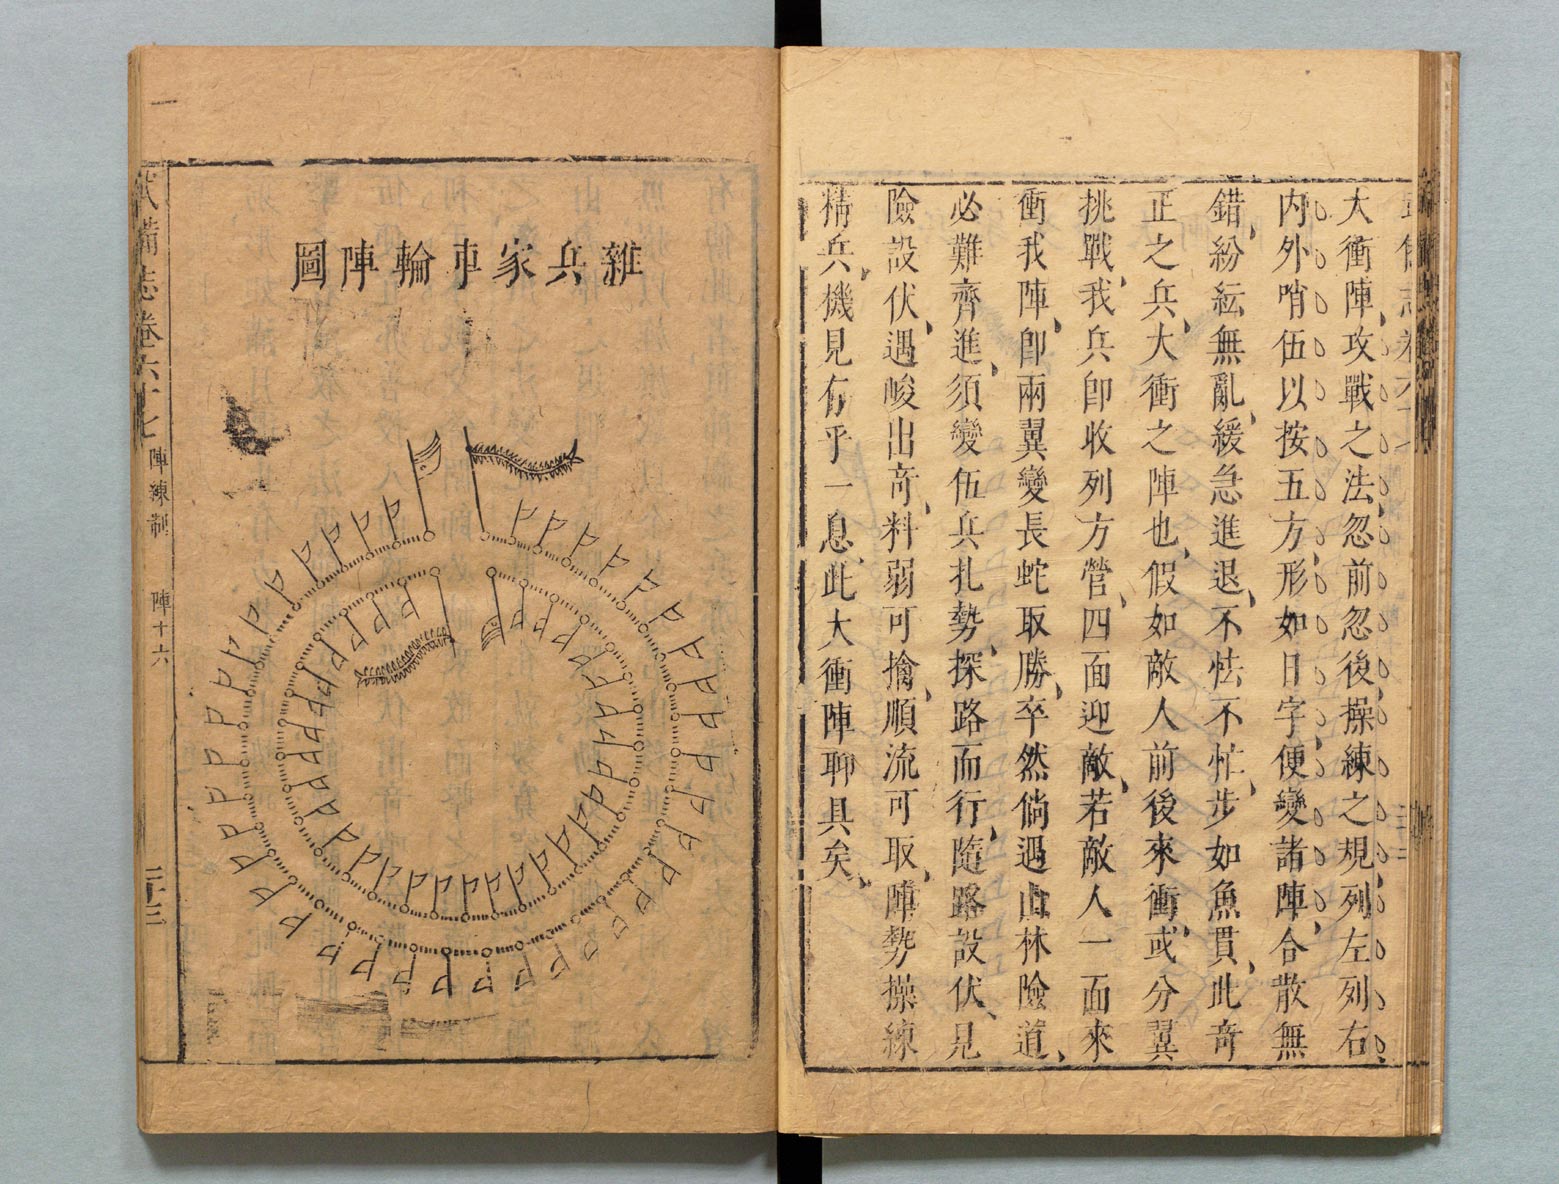 大衝陣攻戰之法忽前忽後操練之規列左列右
内外哨伍以按五方形如日字便變諸陣合散無
錯紛紜無亂緩急進退不怯不忙步如魚貫此竒
正之兵大衝之陣也假如敵人前後來衝或分翼
挑戰我兵卽收列方營四面迎敵若敵人一面來
衝我陣卽兩翼變長蛇取勝卒然倘遇山林險道
必難齊進須變伍兵扎勢探路而行隨路設伏見
險設伏遇峻出竒料弱可擒順流可取陣勢操練
精兵機見有乎一息此大衝陣聊具矣
雜兵家車輪陣圖
武備志卷六十七 陣練制 陣十六 二十三